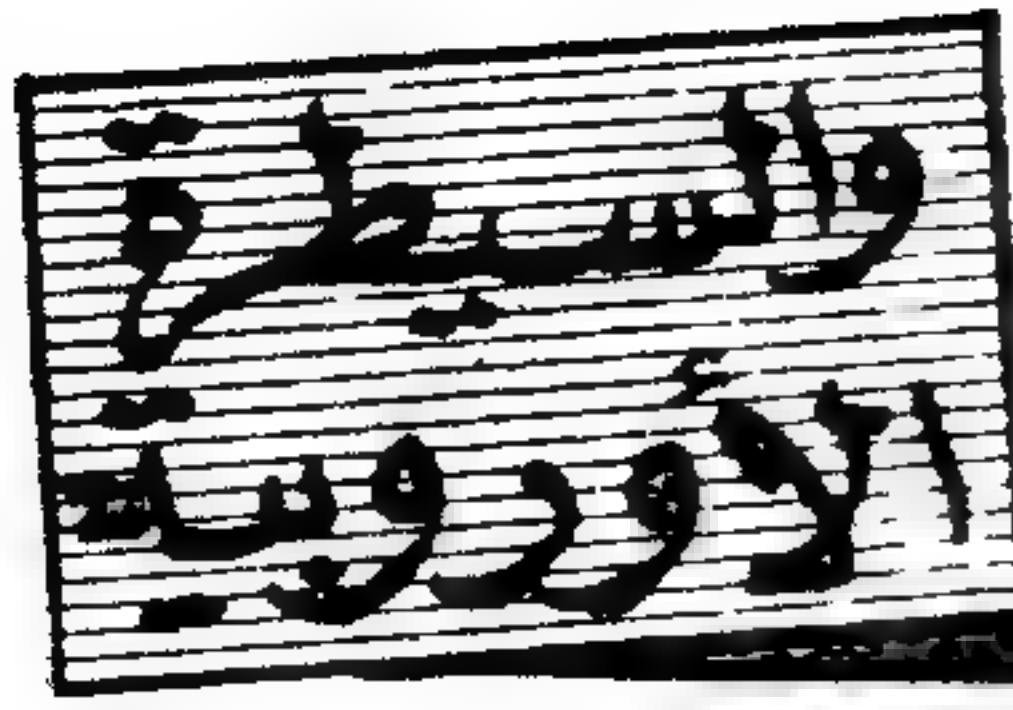 والسيطرة
الأوروبية